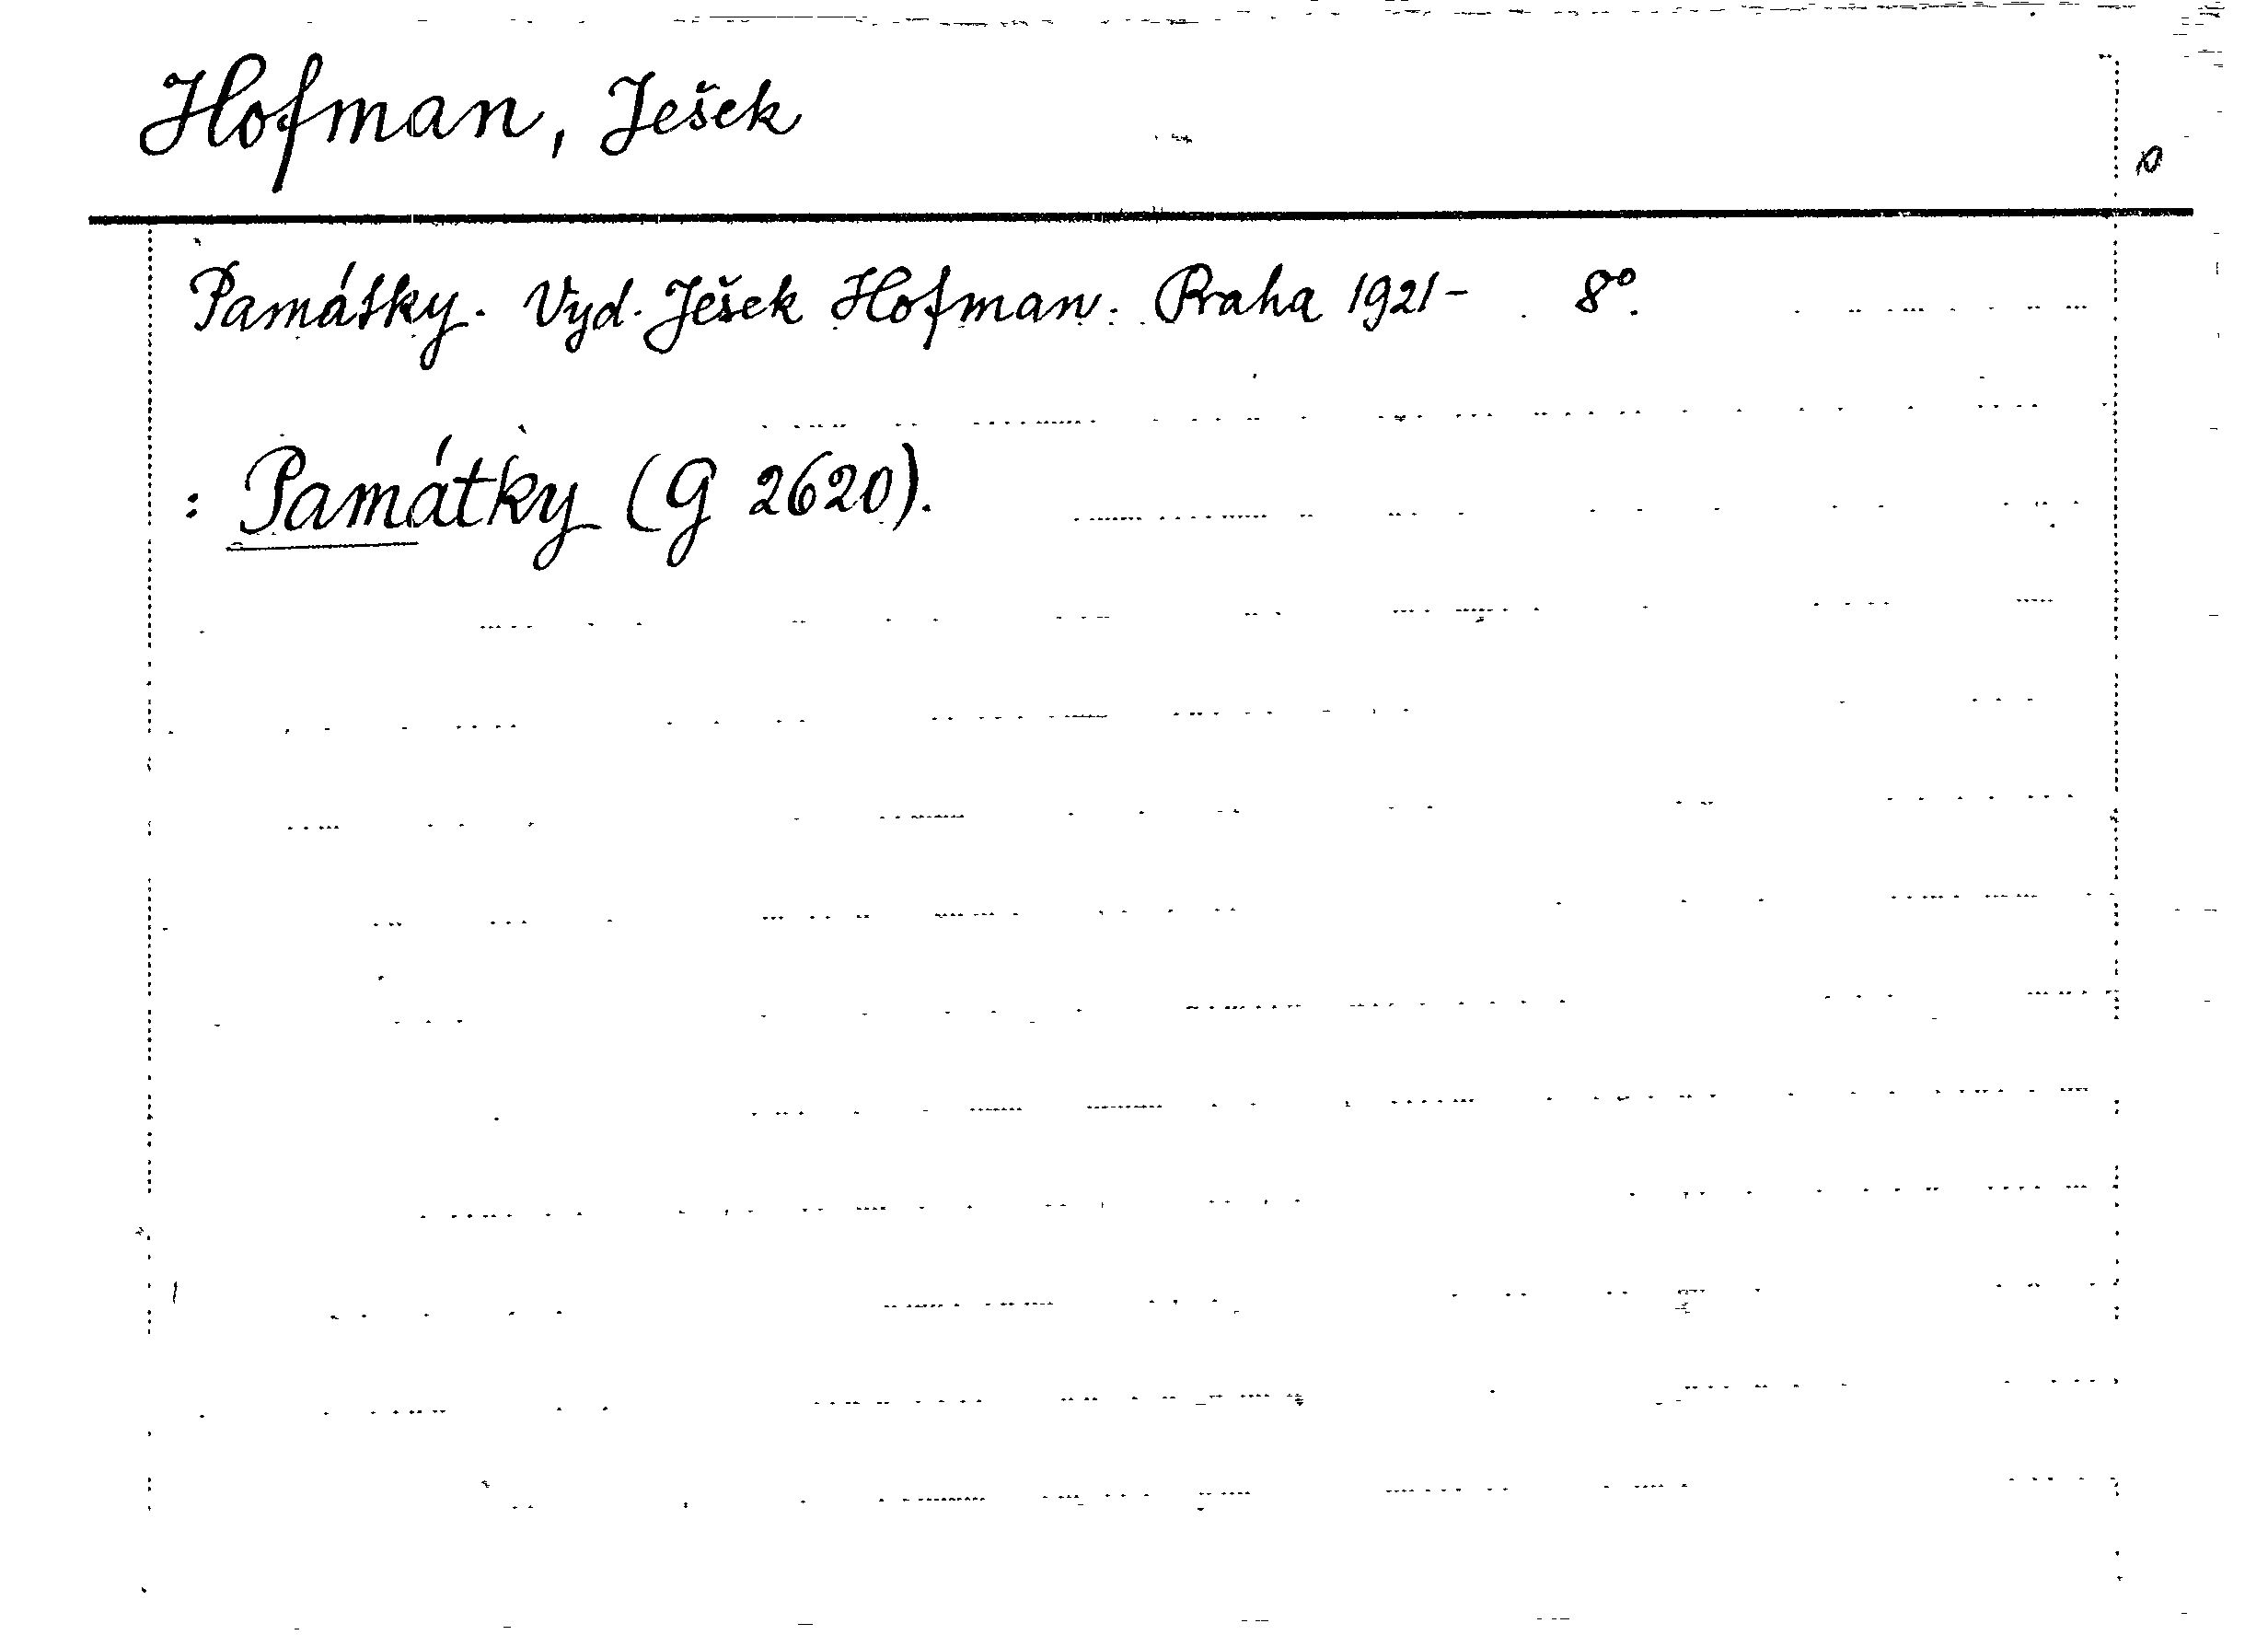 Hofman, Ješek
Památky. Vyd. Ješek Hofman. Praha 1921- 8°.
: Památky (G 2620).